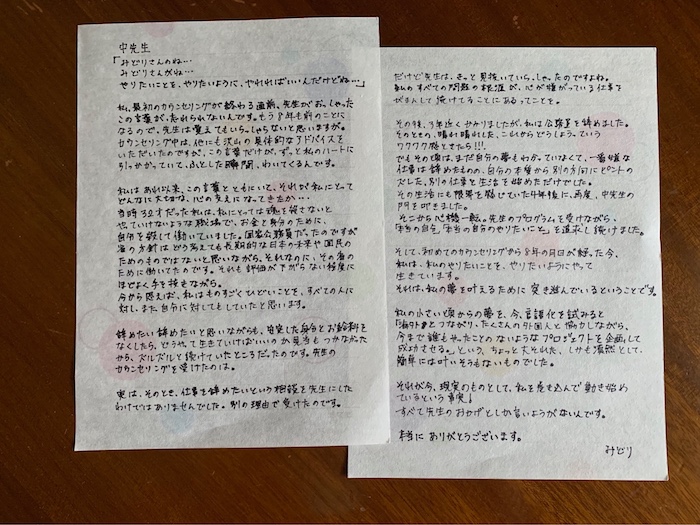 中先生
「みどりさんのね…
みどりさんがね…
やりたいことを、やりたいように、やれればいいんだけどね…」
私、最初のカウンセリングが終わる直前、先生がおっしゃった
この言葉が、忘れられないんです。もう8年も前のことに
なるので、先生は覚えてもいらっしゃらないと思いますが。
カウンセリング中は、他にも沢山の具体的なアドバイスを
いただいたのですが、この言葉だけが、ずっと私のハートに
引っかかっていて、ふとした瞬間、わいてくるんです。
私はあれ以来、この言葉とともにいて、それが私にとって
どんなに大切な、心の支えになってきたか…
当時32才だった私は、私にとっては魂を殺さないと
やっていけないような職場で、お金と身分のために、
自分を殺して働いていました。国家公務員だったのですが
省の方針はどう考えても長期的な日本の未来や国民の
ためのものではないと思いながら、それなのに、その省の
ために働いてたのです。それも評価が下がらない程度に
ほどよく手を抜きながら。
今から思えば、私はものすごくひどいことを、すべての人に
対し、また自分に対してもしていたと思います。
辞めたい辞めたいと思いながらも、安定した身分とお給料を
なくしたら、どうやって生きていけばいいのか見当もつかなかった
から、ズルズルと続けていたところだったのです。先生の
カウンセリングを受けたのは。
実は、そのとき、仕事を辞めたいという相談を先生にした
わけではありませんでした。別の理由で受けたのです。
だけど先生は、きっと見抜いていらっしゃったのですよね。
私のすべての問題の根源が、心が嫌がっている仕事を
がまんして続けてることにあるってことを。
その後、1年近くかかりましたが、私は公務員を辞めました。
そのときの、晴れ晴れした、これからどうしようっていう
ワクワク感ときたら!!!
でもその頃は、まだ自分の夢もわかっていなくて、一番嫌な
仕事は辞めたものの、自分の本質から別の方向にピントの
ズレた、別の仕事と生活を始めただけでした。
その生活にも限界を感じていた4年後に、再度、中先生の
門を叩きました。
そこから心機一転。先生のプログラムを受けながら、
「本当の自分、本当の自分のやりたいこと」を追求し続けました。
そして、初めてのカウンセリングから8年の月日が経った今、
私は、私のやりたいことを、やりたいようにやって
生きています。
それは、私の夢を叶えるために突き進んでいるということです。
私の小さい頃からの夢を、今、言語化を試みると
「海外とつながり、たくさんの外国人と協力しながら、
今まで誰もやったことのないようなプロジェクトを企画して
成功させる。」という、ちょっと大それた、しかも漠然として、
簡単には叶いそうもないものでした。
それが今、現実のものとして、私を巻き込んで動き始め
ているという事実!
すべて先生のおかげとしか言いようがないんです。
本当にありがとうございます。
みどり